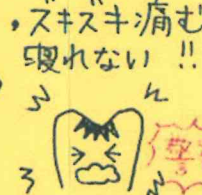 ・ズキズキ痛む
寝れない!!